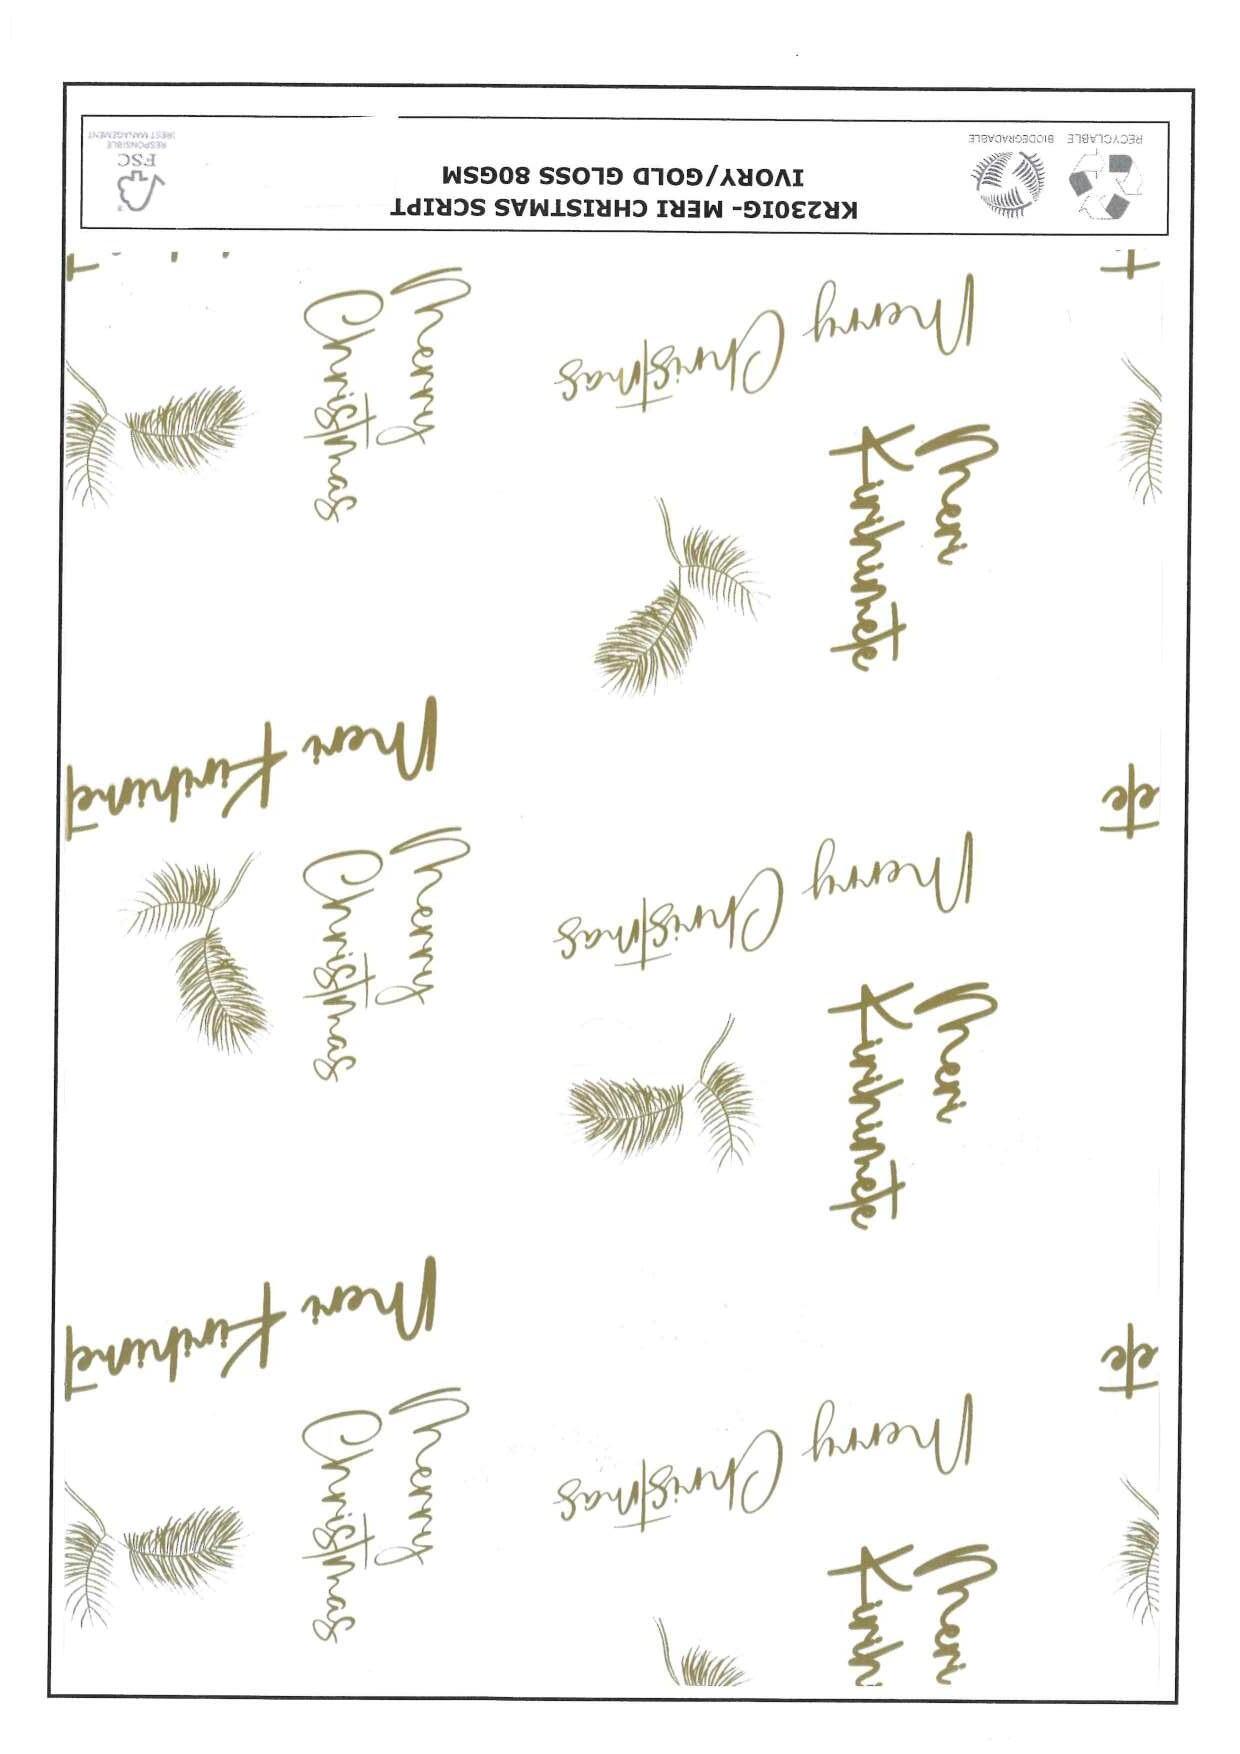 Meri
Kirih
Merry
Christmas
Merry Christmas
ete
Meri Kirihimet
Meri
Kirihimete
Merry
Christmas
Merry Christmas
ete
Meri Kirihimet
Meri
Kirihimete
Merry
Christmas
Merry Christmas
KR230IG- MERI CHRISTMAS SCRIPT
IVORY/GOLD GLOSS 80GSM
RECYCLABLE
BIODEGRADABLE
FSC
RESPONSIBLE
OREST MANAGEMENT